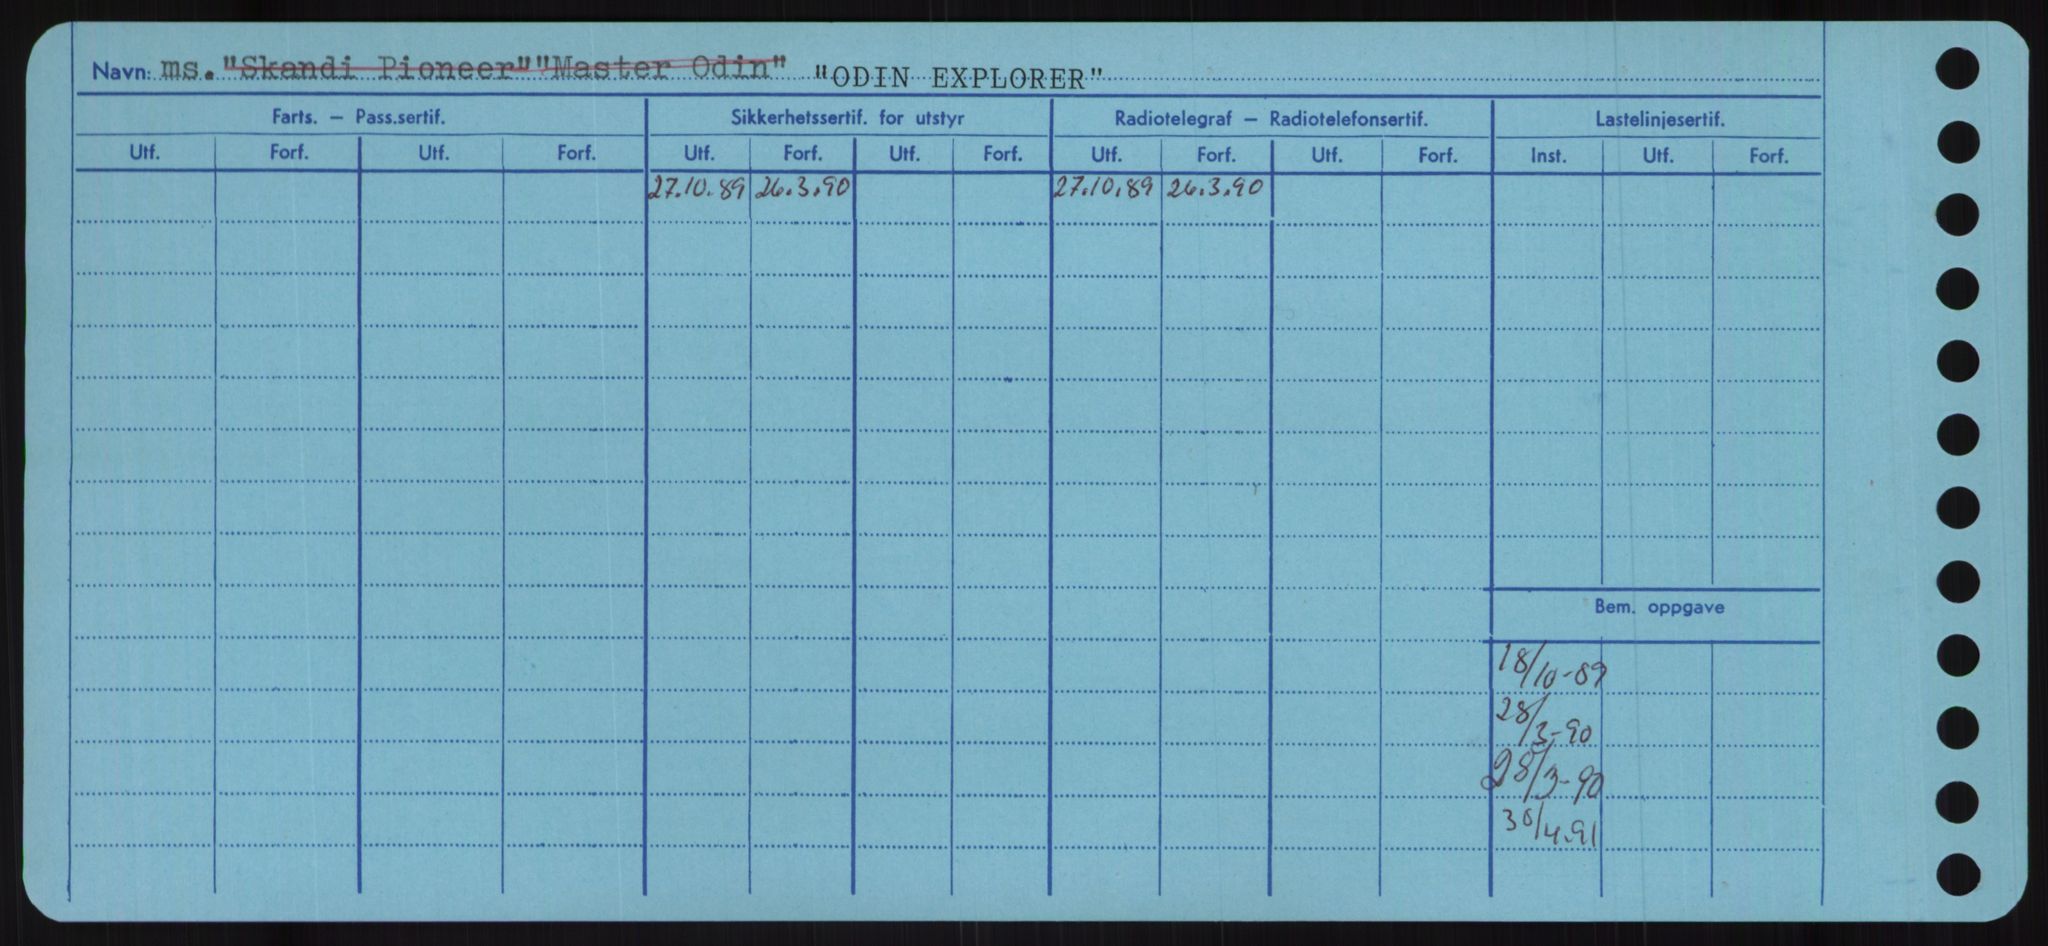 Navn: ms. "Skandi Pioneer" "Master Odin" "ODIN EXPLORER"
Farts. – Pass.sertif. Sikkerhetssertif. for utstyr Radiotelegraf – Radiotelefonsertif. Lastelinjesertif.
Utf. Forf. Utf. Forf. Utf. Forf. Utf. Forf. Utf. Forf. Utf. Forf. Inst. Utf. Forf.
27.10.89 26.3.90 27.10.89 26.3.90
Bem. oppgave
18/10-89
28/3-90
28/3-90
30/4.91